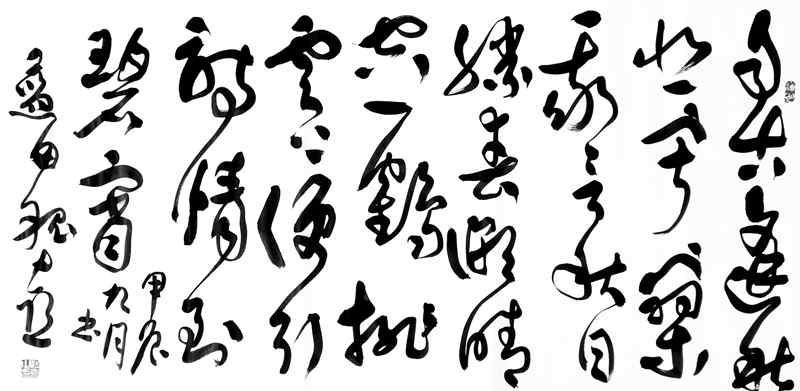 自古逢秋
悲寂寥
我言秋日
勝春朝晴
空一鶴排
雲上便引
詩情到
碧霄
甲辰
九月
书